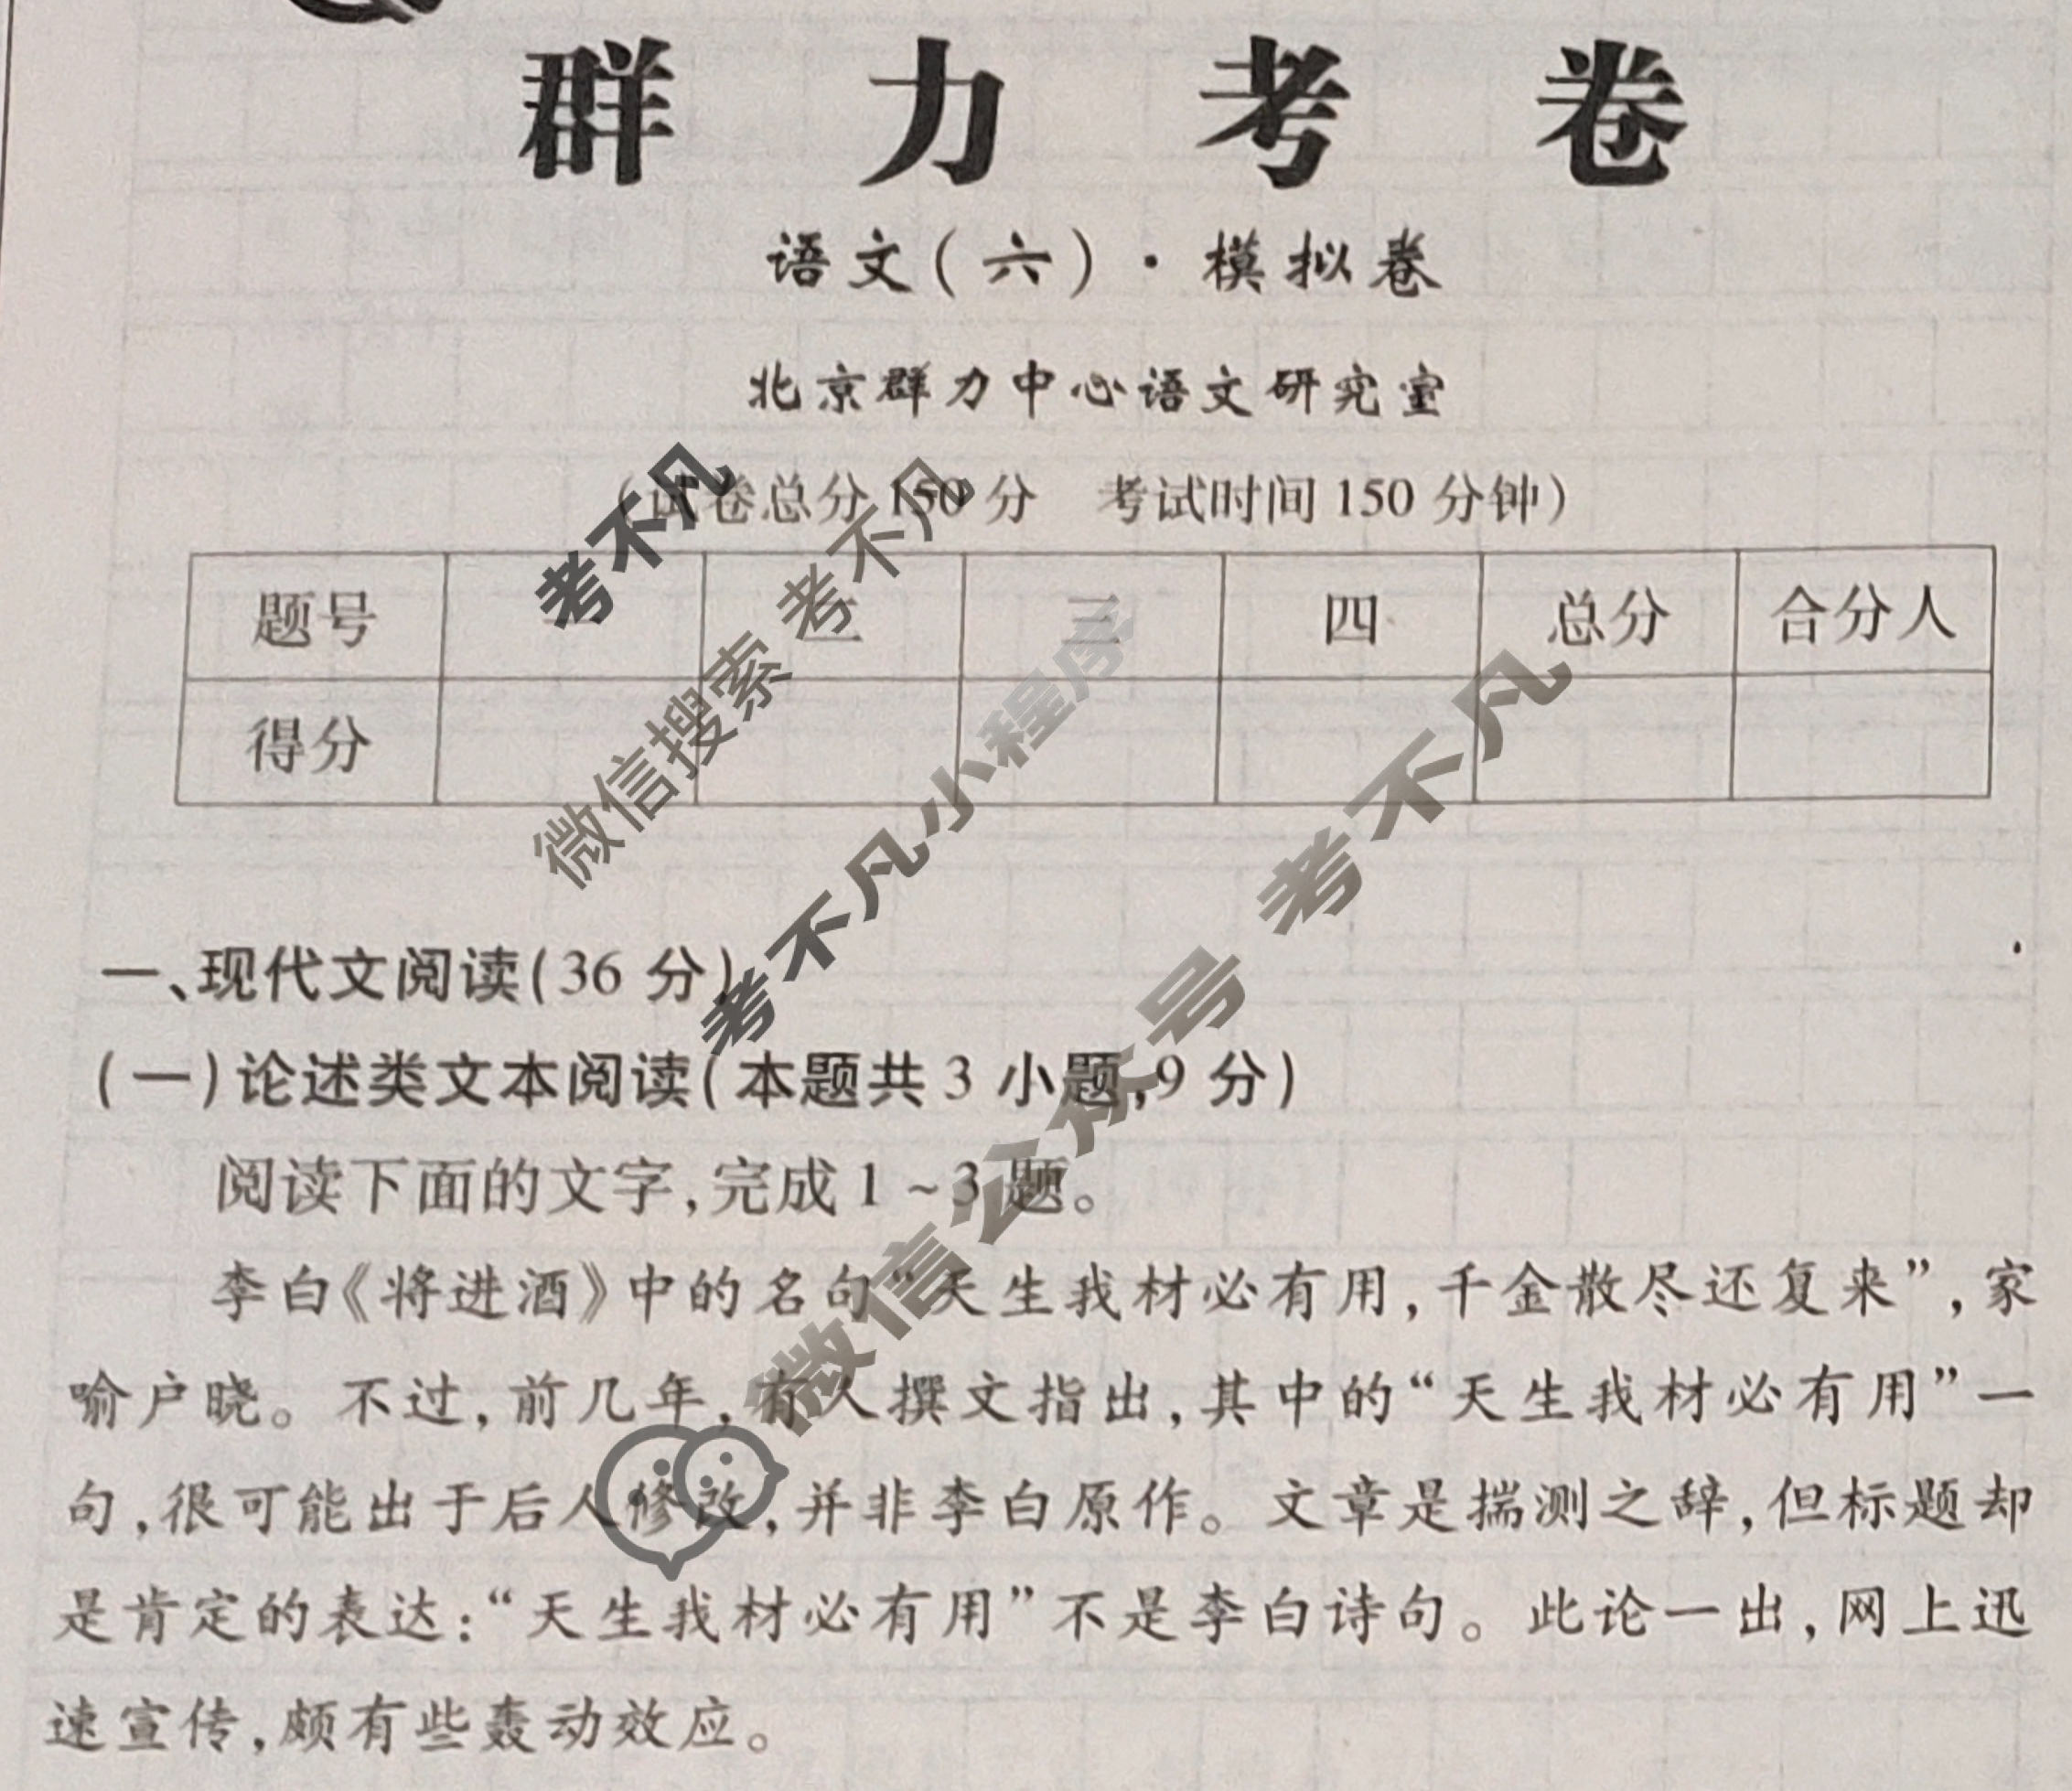 群力考卷
语文(六)·模拟卷
北京群力中心语文研究室
(试卷总分150分 考试时间150分钟)
题号 一 二 三 四 总分 合分人
得分
一、现代文阅读(36分)
(一)论述类文本阅读(本题共3小题,9分)
阅读下面的文字,完成1~3题。
李白《将进酒》中的名句“天生我材必有用,千金散尽还复来”,家
喻户晓。不过,前几年,有人撰文指出,其中的“天生我材必有用”一
句,很可能出于后人修改,并非李白原作。文章是揣测之辞,但标题却
是肯定的表达:“天生我材必有用”不是李白诗句。此论一出,网上迅
速宣传,颇有些轰动效应。
考不凡
微信搜索 考不凡
考不凡小程序
微信公众号 考不凡